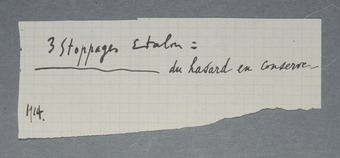 3 Stoppages Etalon =
du hasard en conserve_
1914.